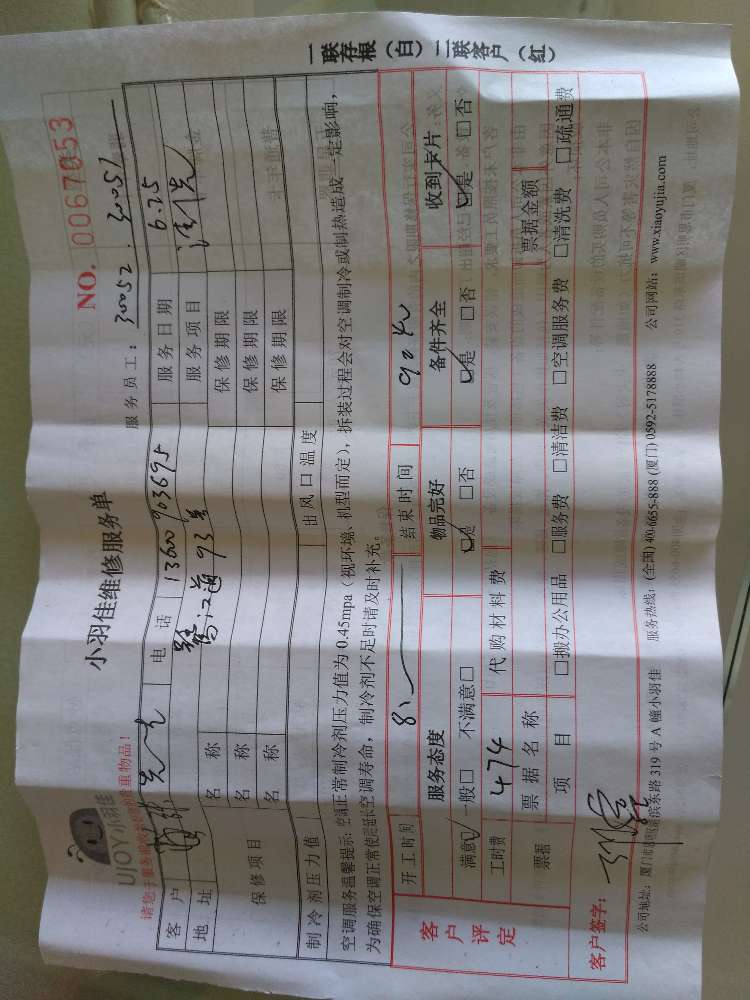 UJOY小羽佳
小羽佳维修服务单
NO. 0067053
服务员工：30052 . 30051
客户 先生 电话 13600903695 服务日期 6.25
地址 鹭江道93号 服务项目 清洗
保修项目 名称 保修期限
名称 保修期限
名称 保修期限
制冷剂压力值 出风口温度
空调服务温馨提示：空调正常制冷剂压力值为0.45mpa（视环境、机型而定），拆装过程会对空调制冷或制热造成一定影响，
为确保空调正常使用延长空调寿命，制冷剂不足时请及时补充。
客户评定
开工时间 结束时间
服务态度 物品完好 备件齐全 收到卡片
满意☑ 一般□ 不满意□ ☑是 □否 ☑是 □否 ☑是 □否
工时费 474 代购材料费
票据 票据名称 票据金额
项目 □搬办公用品 □服务费 □清洁费 □空调服务费 □清洗费 □疏通费
客户签字：
公司地址：厦门市 滨东路319号A幢小羽佳 服务热线：(全国)400-6655-888 (厦门)0592-5178888 公司网站：www.xiaoyujia.com
一联存根（白）二联客户（红）